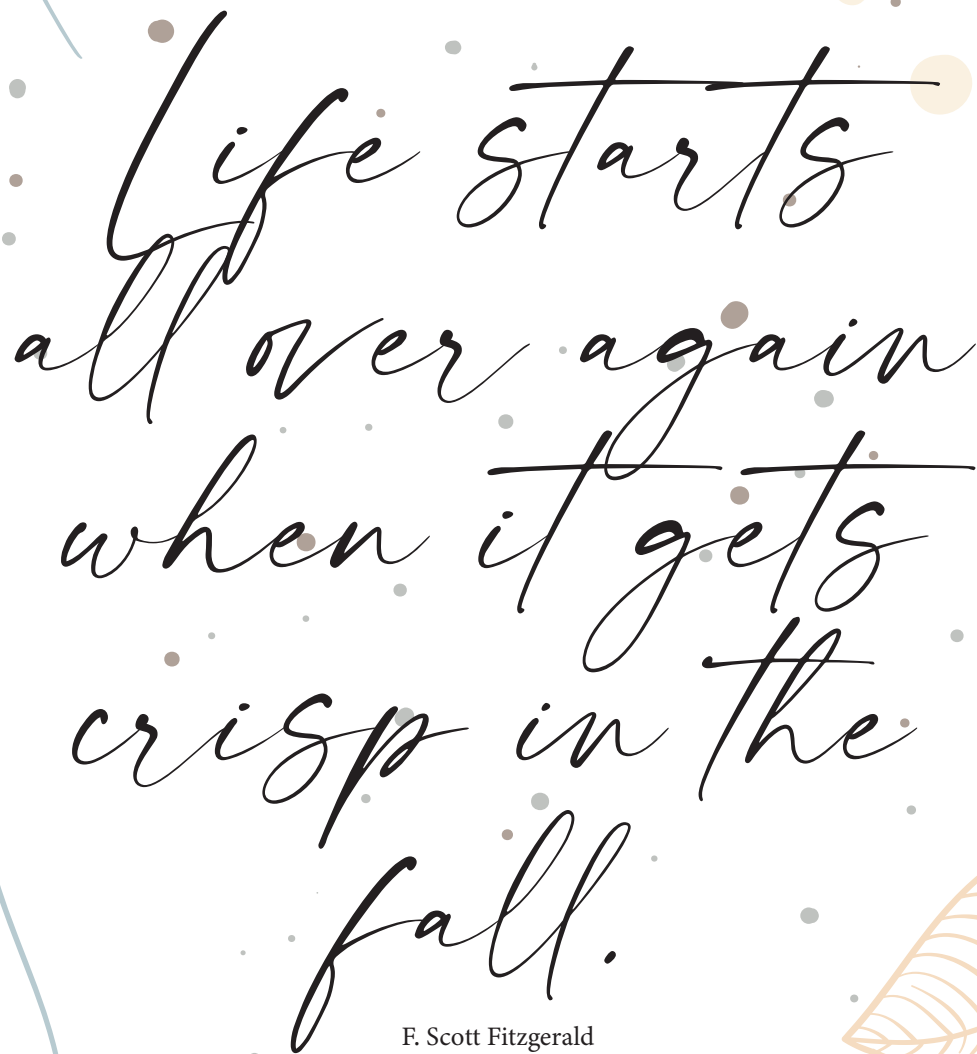 Life starts
all over again
when it gets
crisp in the
fall.
F. Scott Fitzgerald